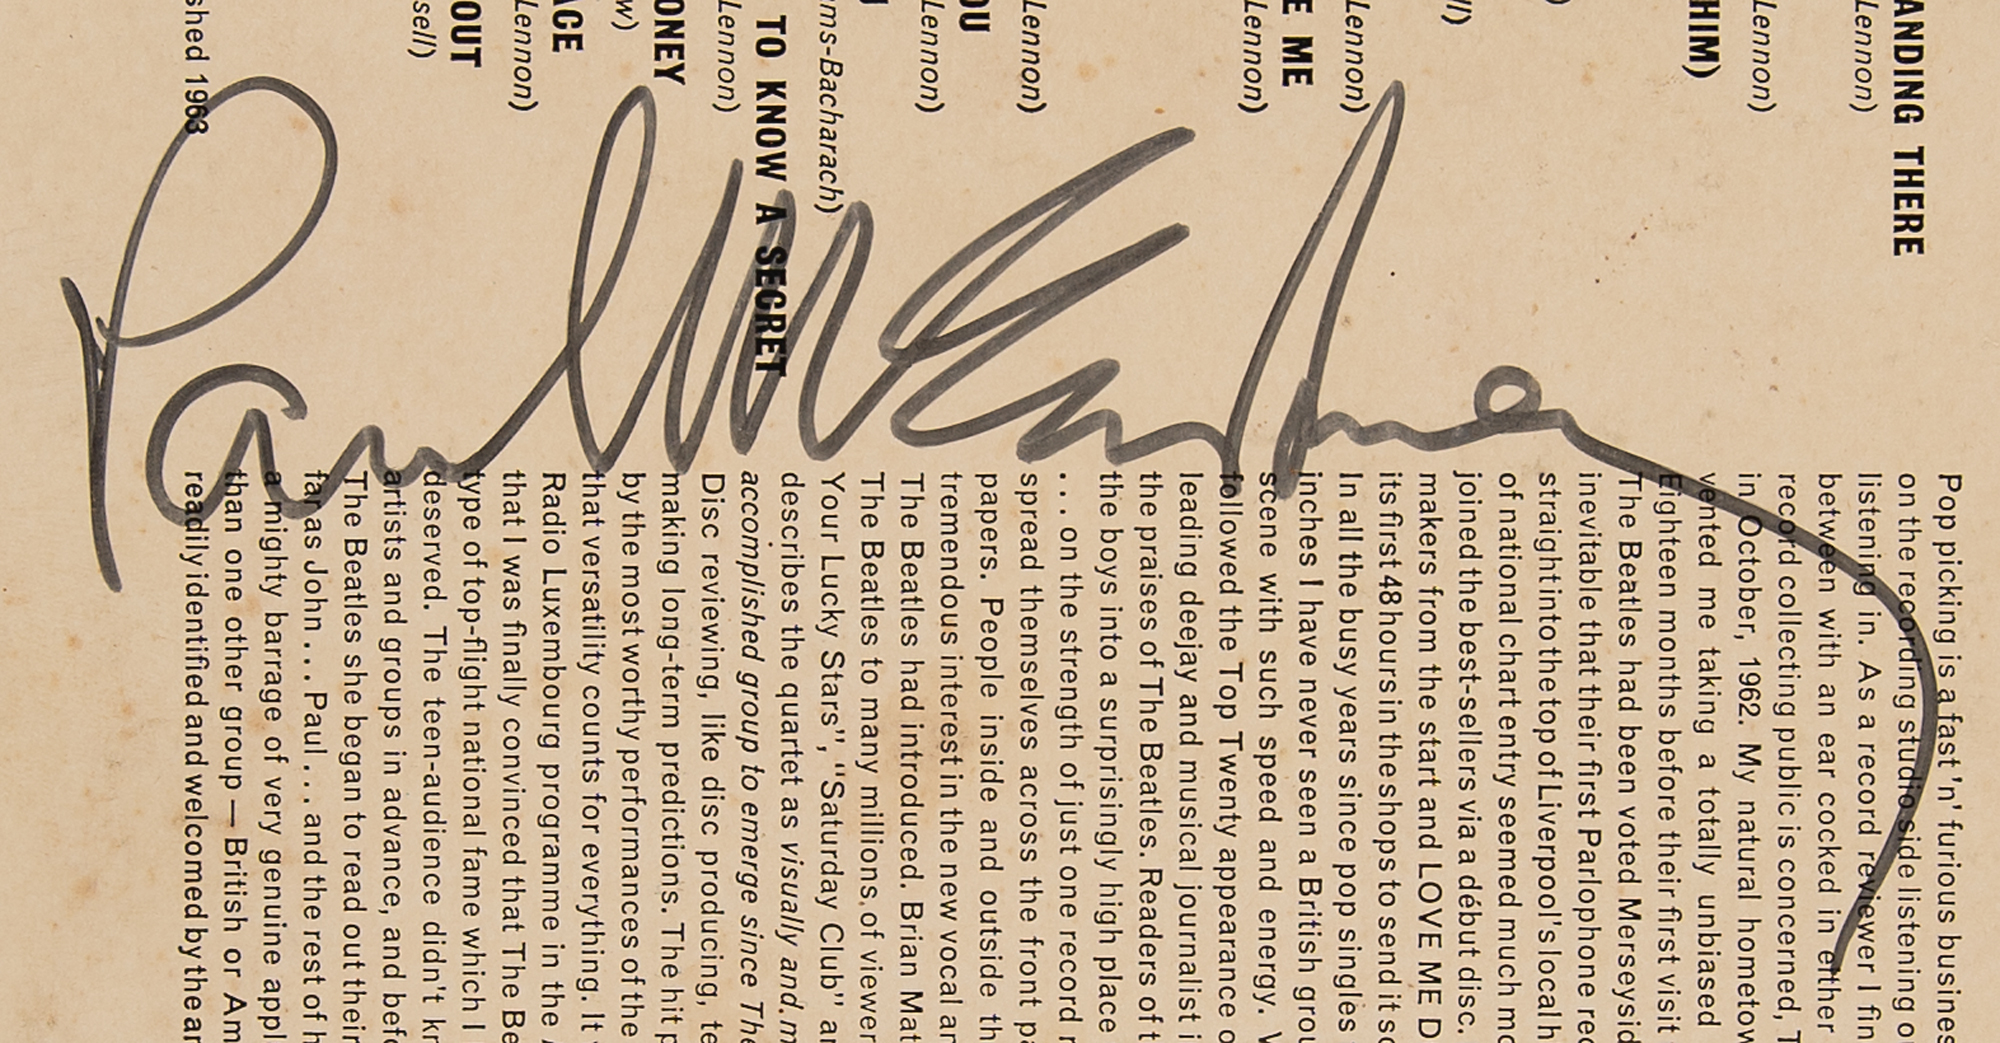 ANDING THERE
Lennon)
Lennon)
HIM)
)
ll)
Lennon)
E ME
Lennon)
Lennon)
OU
Lennon)
ms-Bacharach)
TO KNOW A SECRET
Lennon)
ONEY
w)
ACE
Lennon)
OUT
sell)
shed 1963
Paul McCartney
Pop picking is a fast 'n' furious busines
on the recording studio side listening o
listening in. As a record reviewer I fin
between with an ear cocked in either
record collecting public is concerned, T
in October, 1962. My natural hometow
vented me taking a totally unbiased
Eighteen months before their first visit
The Beatles had been voted Merseysid
inevitable that their first Parlophone rec
straight into the top of Liverpool's local h
of national chart entry seemed much mo
joined the best-sellers via a début disc.
makers from the start and LOVE ME D
its first 48 hours in the shops to send it sc
In all the busy years since pop singles
inches I have never seen a British grou
scene with such speed and energy. V
followed the Top Twenty appearance o
leading deejay and musical journalist i
the praises of The Beatles. Readers of t
the boys into a surprisingly high place
. . . on the strength of just one record r
spread themselves across the front pa
papers. People inside and outside th
tremendous interest in the new vocal an
The Beatles had introduced. Brian Mat
The Beatles to many millions of viewer
Your Lucky Stars", "Saturday Club" an
describes the quartet as visually and m
accomplished group to emerge since The
Disc reviewing, like disc producing, te
making long-term predictions. The hit p
by the most worthy performances of the
that versatility counts for everything. It
Radio Luxembourg programme in the
that I was finally convinced that The Be
type of top-flight national fame which I
deserved. The teen-audience didn't kn
artists and groups in advance, and befo
The Beatles she began to read out their
far as John . . . Paul . . . and the rest of h
a mighty barrage of very genuine appl
than one other group — British or Am
readily identified and welcomed by the ar